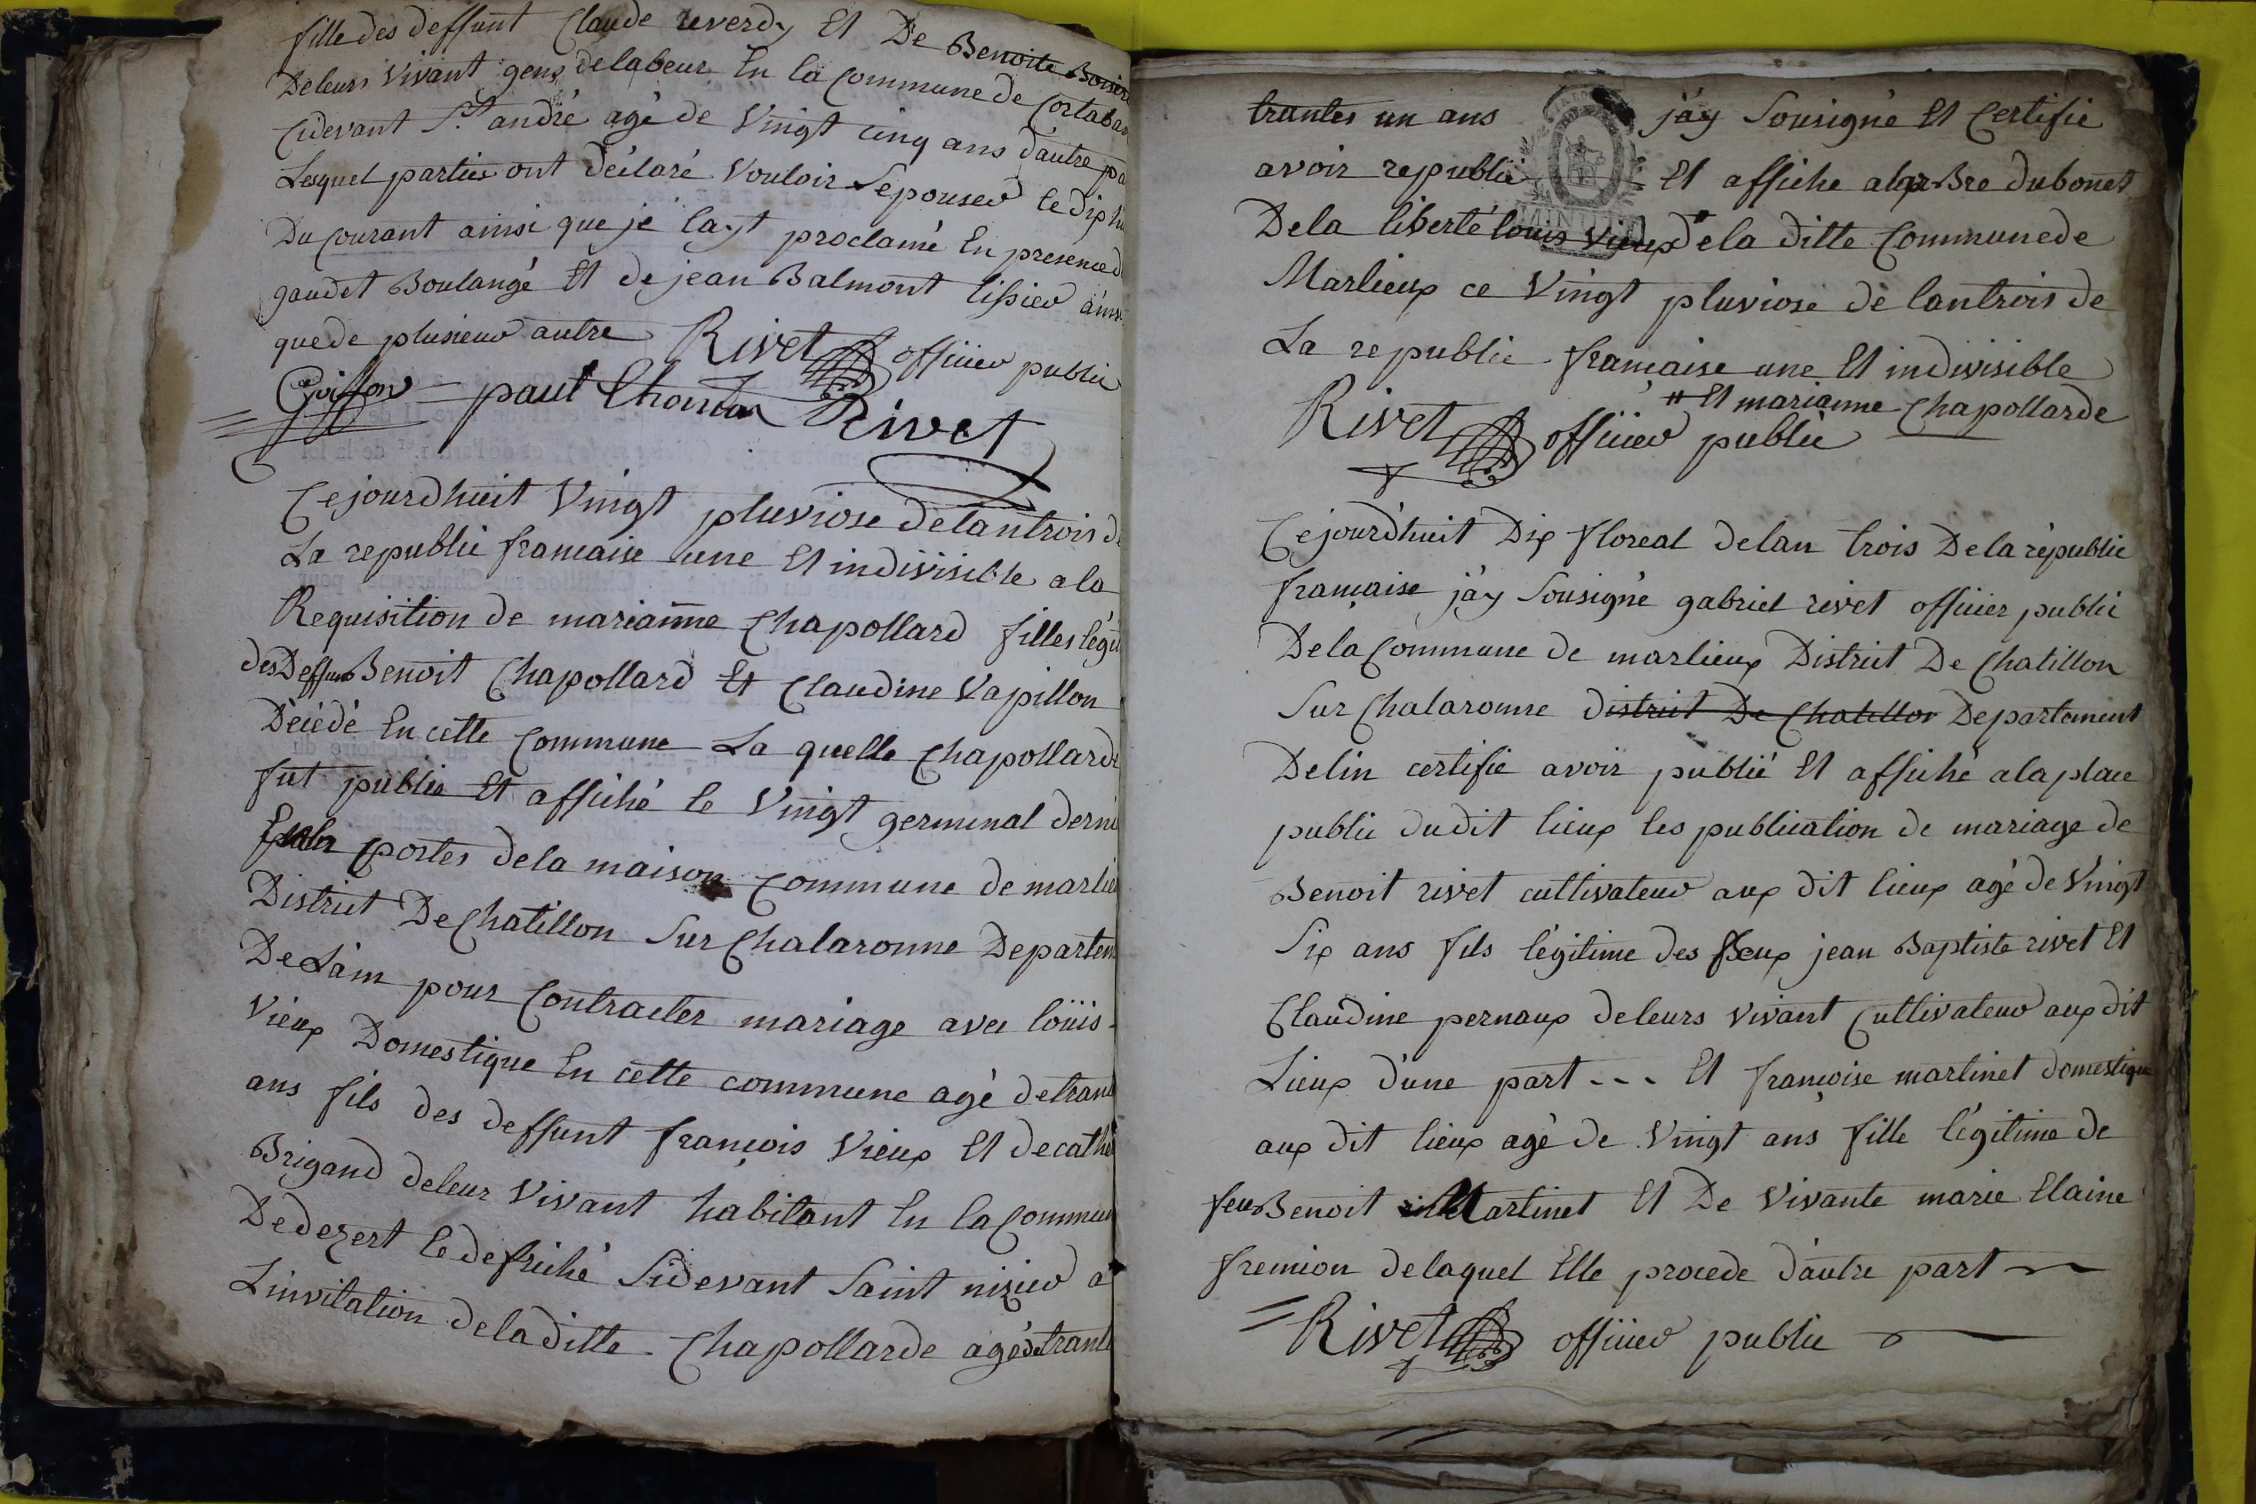 fille des deffunt Claude reverdy Et De Benoite
De leurs Vivant gens delabeur En la Commune de
Cidevant St andré agé de Vingt cinq ans dautre pa
Lesquel parties ont déclaré Vouloir Sepouser le dix
Du Courant ainsi que je layt proclamé En presence d
gaudet Boulangé Et de jean Balmont tissier ains
que de plusieur autre Rivet officier public
Guiffon paul thomas Rivet
Cejourdhuit Vingt pluviose delantrois de
La republic francaise une Et indivisible a la
Requisition de marianne Chapollard filles légi
des Deffunt Benoit Chapollard Et Claudine Vapillon
Décédé En cette Commune La quelle Chapollarde
fut publié Et affiché le Vingt germinal derni
portes dela maison Commune de marlieu
District De Chatillon Sur Chalaronne Departem
De Lain pour Contracter mariage avec loüis
Vieux Domestique En cette commune agé de trant
ans fils des deffunt françois Vieux Et de cathe
Brigand deleur Vivant habitant En la Commun
De dezert le defriché Sidevant Saint nizier a
Linvitation deladitte Chapollarde agé de trante
trantes un ans jáy Sousigné Et Certifie
avoir republié Et affiche alarBre dubonet
Dela liberté louis vieux # dela ditte Communede
Marlieux ce Vingt pluviose de lantrois de
La republic française une Et indivisible
# Et marianne Chapollarde
Rivet officier public
Cejourdhuit Dix floreal delan trois Dela républic
française jáy Sousigné gabriel rivet officier public
Dela Commune de marlieux District De Chatillon
Sur Chalaronne district De Chatillon Departement
Delin certifie avoir publié Et affiché alaplace
public dudit lieux les publication de mariage de
Benoit rivet cultivateur aux dit lieux agé de Vingt
Six ans fils légitime des feux jean Baptiste rivet Et
Claudine pernaux deleurs vivant Cultivateur aux dit
Lieux d'une part - - - Et françoise martinet domestique
aux dit lieux agé de Vingt ans fille légitime de
feu Benoit Martinet Et De Vivante marie Elaine
fremion delaquel Elle procede dautre part
Rivet officier public